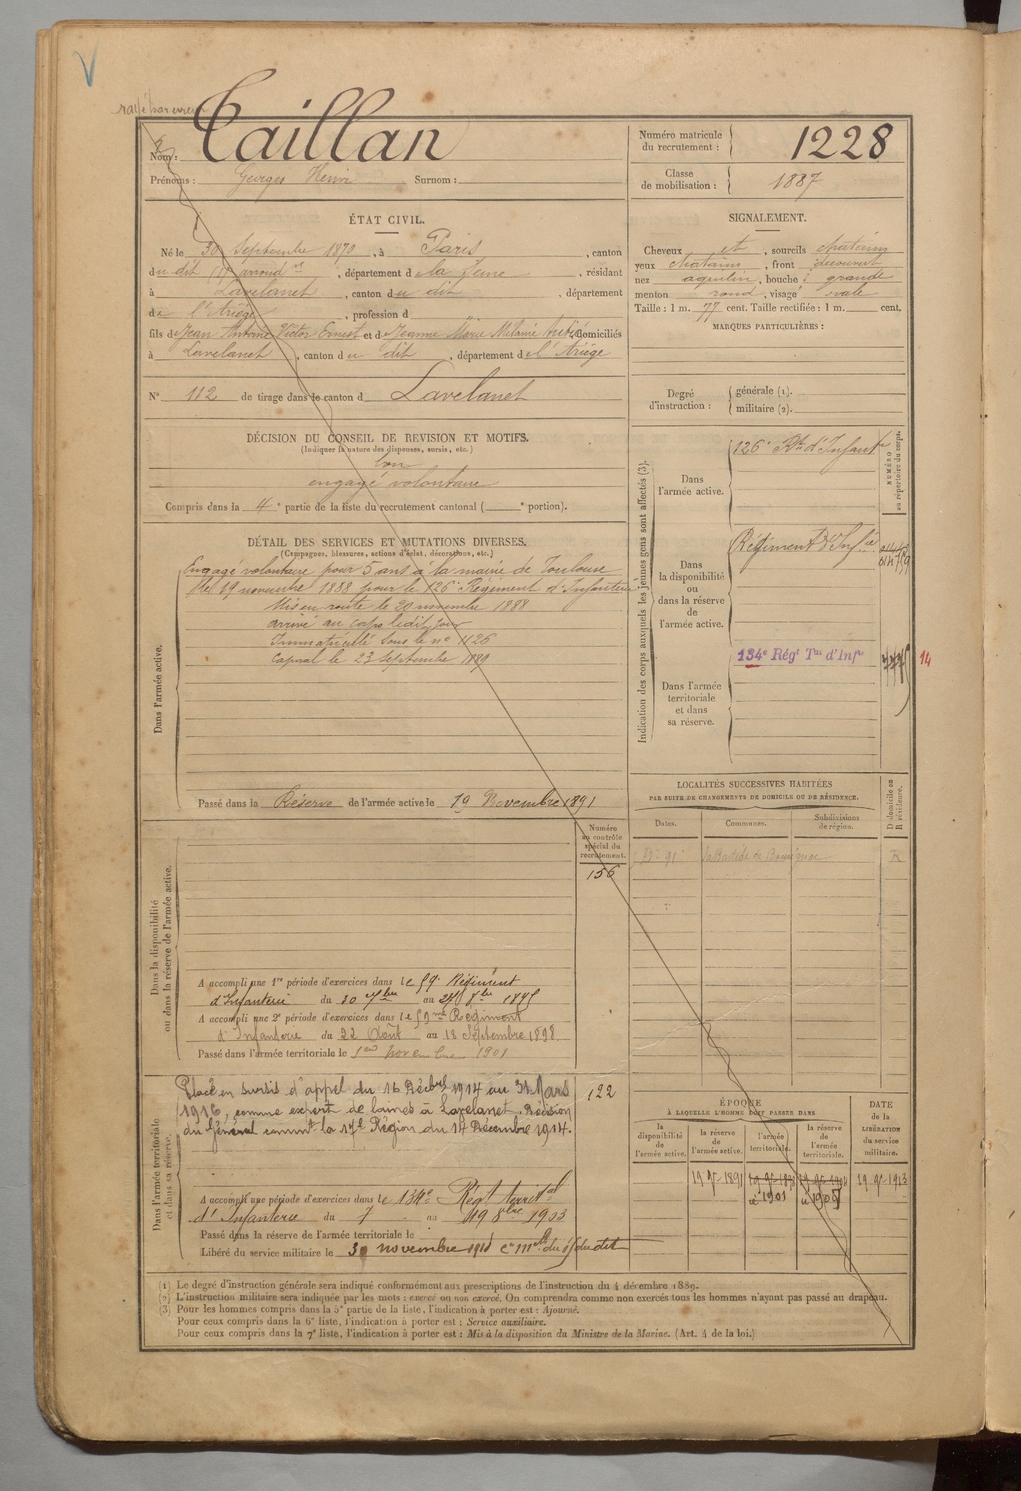 V
rayé par erreur
Nom : Taillan
Prénoms : Georges Henri Surnom :
Numéro matricule du recrutement : 1228
Classe de mobilisation : 1887
ÉTAT CIVIL.
Né le 30 Septembre 1870, à Paris, canton
du dit arrond t, département de la Seine, résidant
à Lavelanet, canton du dit, département
de l'Ariège, profession d
fils de Jean Antoine Victor Ernest et de Jeanne Marie Mélanie domiciliés
à Lavelanet, canton du dit, département de l'Ariège
N° 112 de tirage dans le canton d Lavelanet
SIGNALEMENT.
Cheveux et, sourcils chatains
yeux chatains, front découvert
nez aquilin, bouche grande
menton rond, visage ovale
Taille : 1 m. 77 cent. Taille rectifiée : 1 m. cent.
MARQUES PARTICULIÈRES :
Degré d'instruction : générale (1).
militaire (2).
DÉCISION DU CONSEIL DE REVISION ET MOTIFS.
(Indiquer la nature des dispenses, sursis, etc.)
bon
engagé volontaire
Compris dans la 4e partie de la liste du recrutement cantonal ( e portion).
DÉTAIL DES SERVICES ET MUTATIONS DIVERSES.
(Campagnes, blessures, actions d'éclat, décorations, etc.)
Dans l'armée active.
Engagé volontaire pour 5 ans à la mairie de Toulouse
le 19 novembre 1888 pour le 126e Régiment d'Infanterie
Mis en route le 20 novembre 1888
arrivé au corps ledit jour
Immatriculé sous le no 1126
Caporal le 23 Septembre 1889
Passé dans la Réserve de l'armée active le 19 Novembre 1891
Indication des corps auxquels les jeunes gens sont affectés (3).
NUMÉRO au répertoire du corps.
Dans l'armée active.
126e Rt d'Infantie
Dans la disponibilité ou dans la réserve de l'armée active.
Régiment d'Infie
Dans l'armée territoriale et dans sa réserve.
134e Régt Tal d'Infie
14
LOCALITÉS SUCCESSIVES HABITÉES
PAR SUITE DE CHANGEMENTS DE DOMICILE OU DE RÉSIDENCE.
Dates. Communes. Subdivisions de région. D domicile ou R résidence.
91 Labastide de R
Dans la disponibilité ou dans la réserve de l'armée active.
Numéro au contrôle spécial du recrutement.
156
A accompli une 1re période d'exercices dans le 59e Régiment
d'Infanterie du 30 7bre au 8bre 1895
A accompli une 2e période d'exercices dans le 59me Régiment
d'Infanterie du 22 Août au 18 Septembre 1898
Passé dans l'armée territoriale le 1er novembre 1901
Dans l'armée territoriale et dans sa réserve.
122
Placé en sursis d'appel du 16 Décbre 1914 au 31 Mars
1916, comme expert de laines à Lavelanet. Décision
du Général commt la 17e Région du 14 Décembre 1914.
A accompli une période d'exercices dans le 134e Régt territal
d'Infanterie du 7 au 19 8bre 1903
Passé dans la réserve de l'armée territoriale le
Libéré du service militaire le 30 novembre 1918 du dit
ÉPOQUE
À LAQUELLE L'HOMME DOIT PASSER DANS
la disponibilité de l'armée active. la réserve de l'armée active. l'armée territoriale. la réserve de l'armée territoriale. DATE de la LIBÉRATION du service militaire.
19 9bre 1891 1901 19 9bre 1913
(1) Le degré d'instruction générale sera indiqué conformément aux prescriptions de l'instruction du 4 décembre 1889.
(2) L'instruction militaire sera indiquée par les mots : exercé ou non exercé. On comprendra comme non exercés tous les hommes n'ayant pas passé au drapeau.
(3) Pour les hommes compris dans la 5e partie de la liste, l'indication à porter est : Ajourné.
Pour ceux compris dans la 6e liste, l'indication à porter est : Service auxiliaire.
Pour ceux compris dans la 7e liste, l'indication à porter est : Mis à la disposition du Ministre de la Marine. (Art. 4 de la loi.)